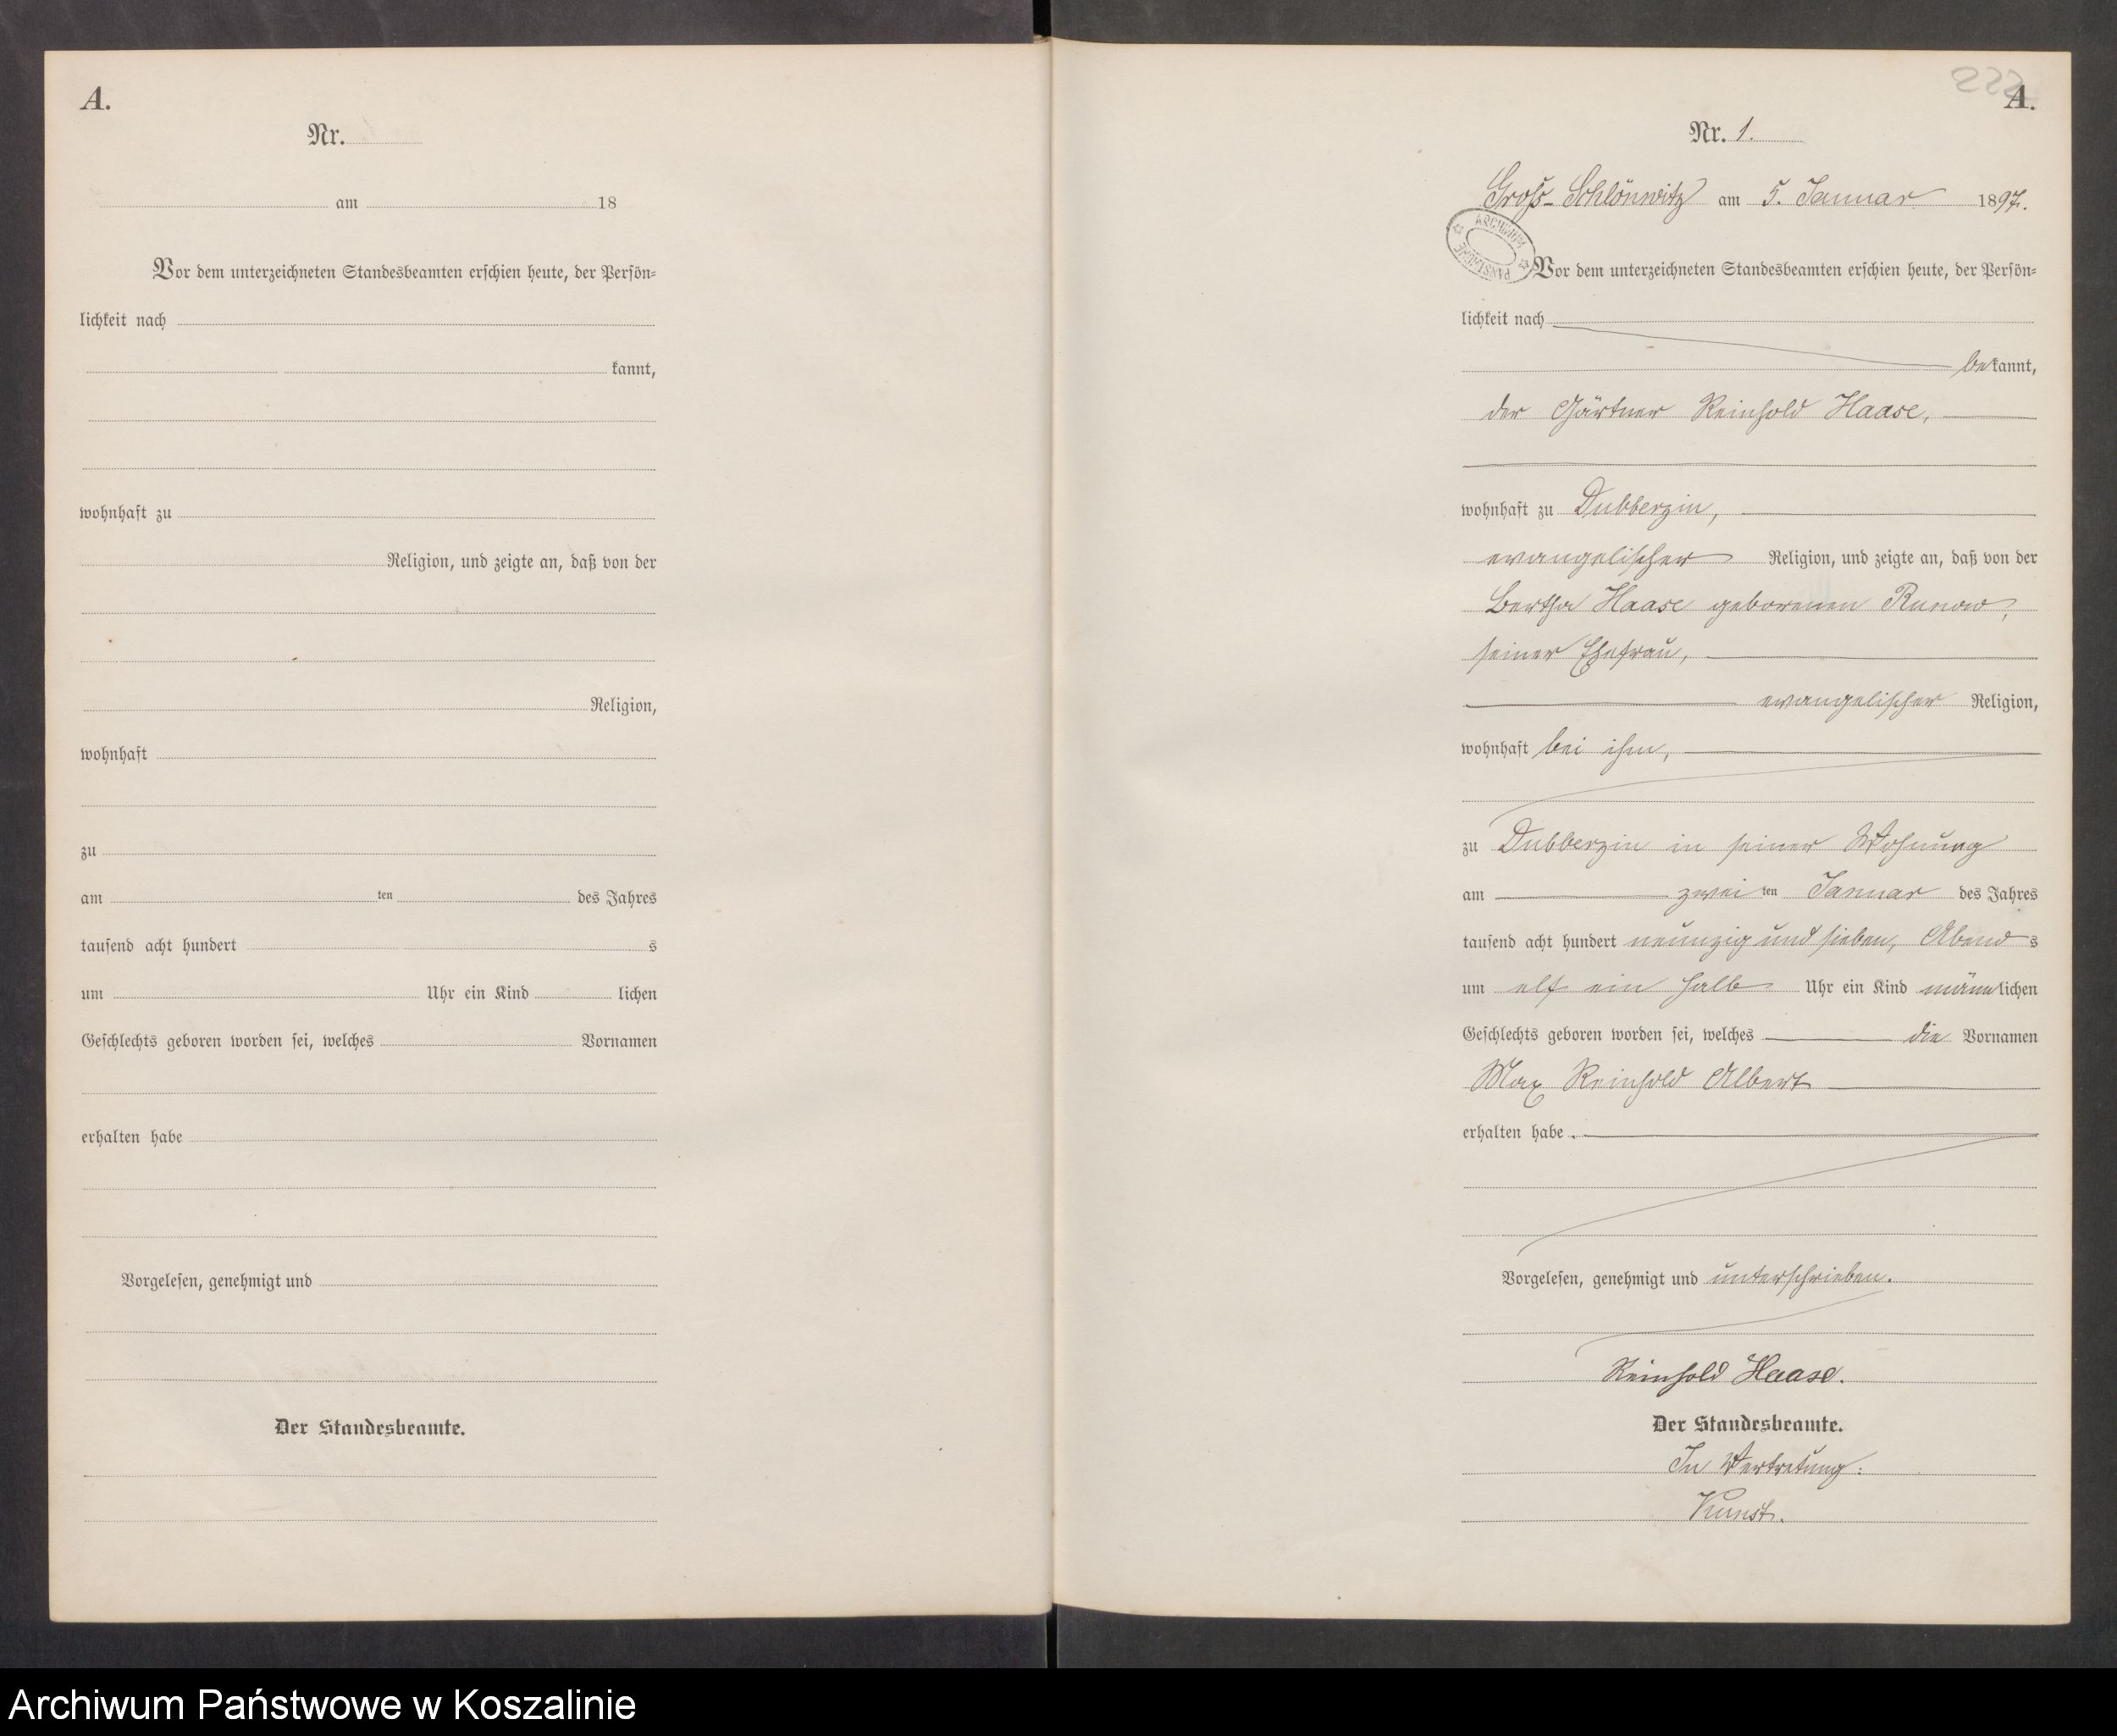 A.
Nr.
am 18
Vor dem unterzeichneten Standesbeamten erschien heute, der Persön-
lichkeit nach
kannt,
wohnhaft zu
Religion, und zeigte an, daß von der
Religion,
wohnhaft
zu
am ten des Jahres
tausend acht hundert s
um Uhr ein Kind lichen
Geschlechts geboren worden sei, welches Vornamen
erhalten habe
Vorgelesen, genehmigt und
Der Standesbeamte.
222
A.
Nr. 1.
Groß-Schlönwitz am 5. Januar 1897.
ARCHIWUM PAŃSTWOWE
Vor dem unterzeichneten Standesbeamten erschien heute, der Persön-
lichkeit nach
bekannt,
der Gärtner Reinhold Haase,
wohnhaft zu Dubberzin,
evangelischer Religion, und zeigte an, daß von der
Bertha Haase geborenen Runow,
seiner Ehefrau,
evangelischer Religion,
wohnhaft bei ihm,
zu Dubberzin in seiner Wohnung
am zwei ten Januar des Jahres
tausend acht hundert neunzig und sieben, Abend s
um elf ein halb Uhr ein Kind männlichen
Geschlechts geboren worden sei, welches die Vornamen
Max Reinhold Albert
erhalten habe.
Vorgelesen, genehmigt und unterschrieben.
Reinhold Haase.
Der Standesbeamte.
In Vertretung:
Kunst.
Archiwum Państwowe w Koszalinie